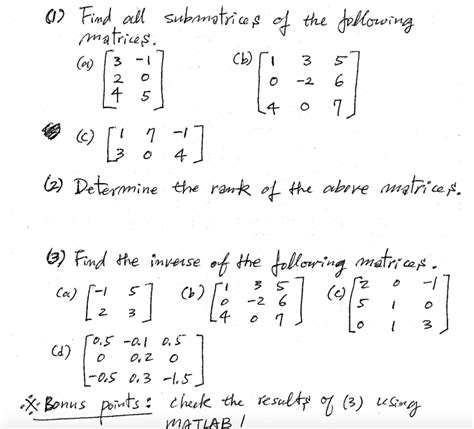 (1) Find all submatrices of the following
matrices.
(a) [3 -1
2 0
4 5]
(b) [1 3 5
0 -2 6
4 0 7]
(c) [1 7 -1
3 0 4]
(2) Determine the rank of the above matrices.
(3) Find the inverse of the following matrices.
(a) [-1 5
2 3]
(b) [1 3 5
0 -2 6
4 0 7]
(c) [2 0 -1
5 1 0
0 1 3]
(d) [0.5 -0.1 0.5
0 0.2 0
-0.5 0.3 -1.5]
※ Bonus points: check the results of (3) using
MATLAB!